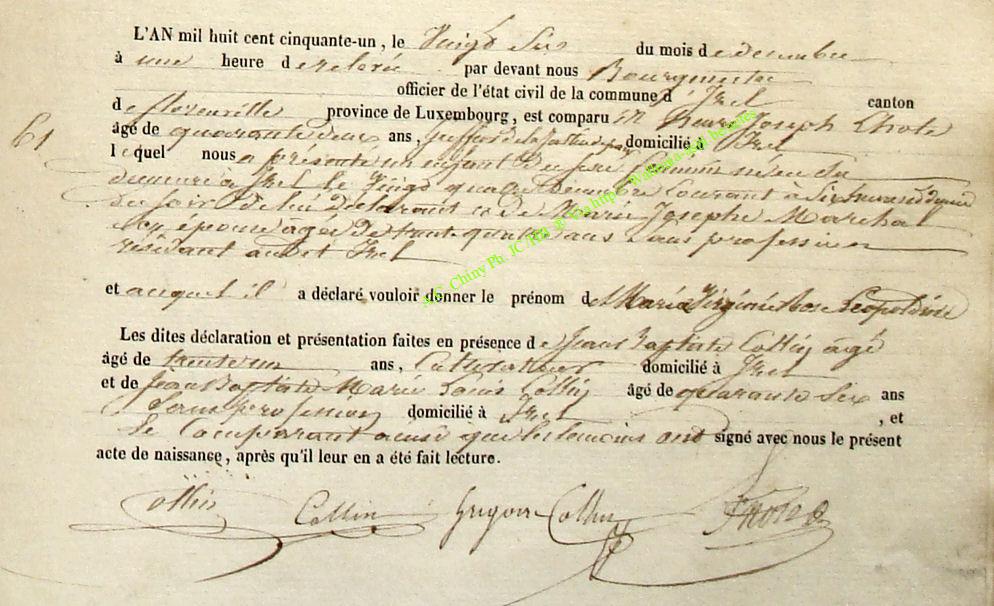 L'AN mil huit cent cinquante-un, le Vingt Six du mois de decembre
à une heure de relevée par devant nous Bourgmestre
officier de l'état civil de la commune d'Izel canton
de florenville province de Luxembourg, est comparu Henry Joseph
âgé de quarante deux ans, Greffier de la Justice de paix domicilié à Izel
lequel nous a présenté un enfant du sexe féminin né en sa
demeure à Izel le Vingt quatre Decembre Courant à Six heures
du soir de lui Déclarant et de Marie Josephe Marechal
son épouse âgée de trente quatre ans sans profession
résidant audit Izel
et auquel il a déclaré vouloir donner le prénom de Marie Virginie Leopoldine
Les dites déclaration et présentation faites en présence de Jean Baptiste Collin âgé
âgé de trente un ans, Cultivateur domicilié à Izel
et de Jean Baptiste Marie Louis Collin âgé de quarante Six ans
Sans profession domicilié à Izel, et
le Comparant ainsi que les temoins ont signé avec nous le présent
acte de naissance, après qu'il leur en a été fait lecture.
61
A.G. Chiny Ph. JC/RH
Collin Collin Grégoire Collin